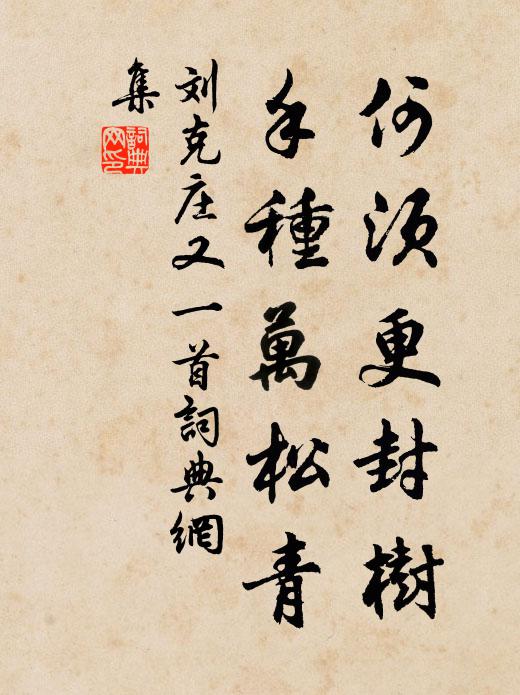 何須更封樹
手種萬松青
刘克庄又一首詞典網
集
詞典
网印